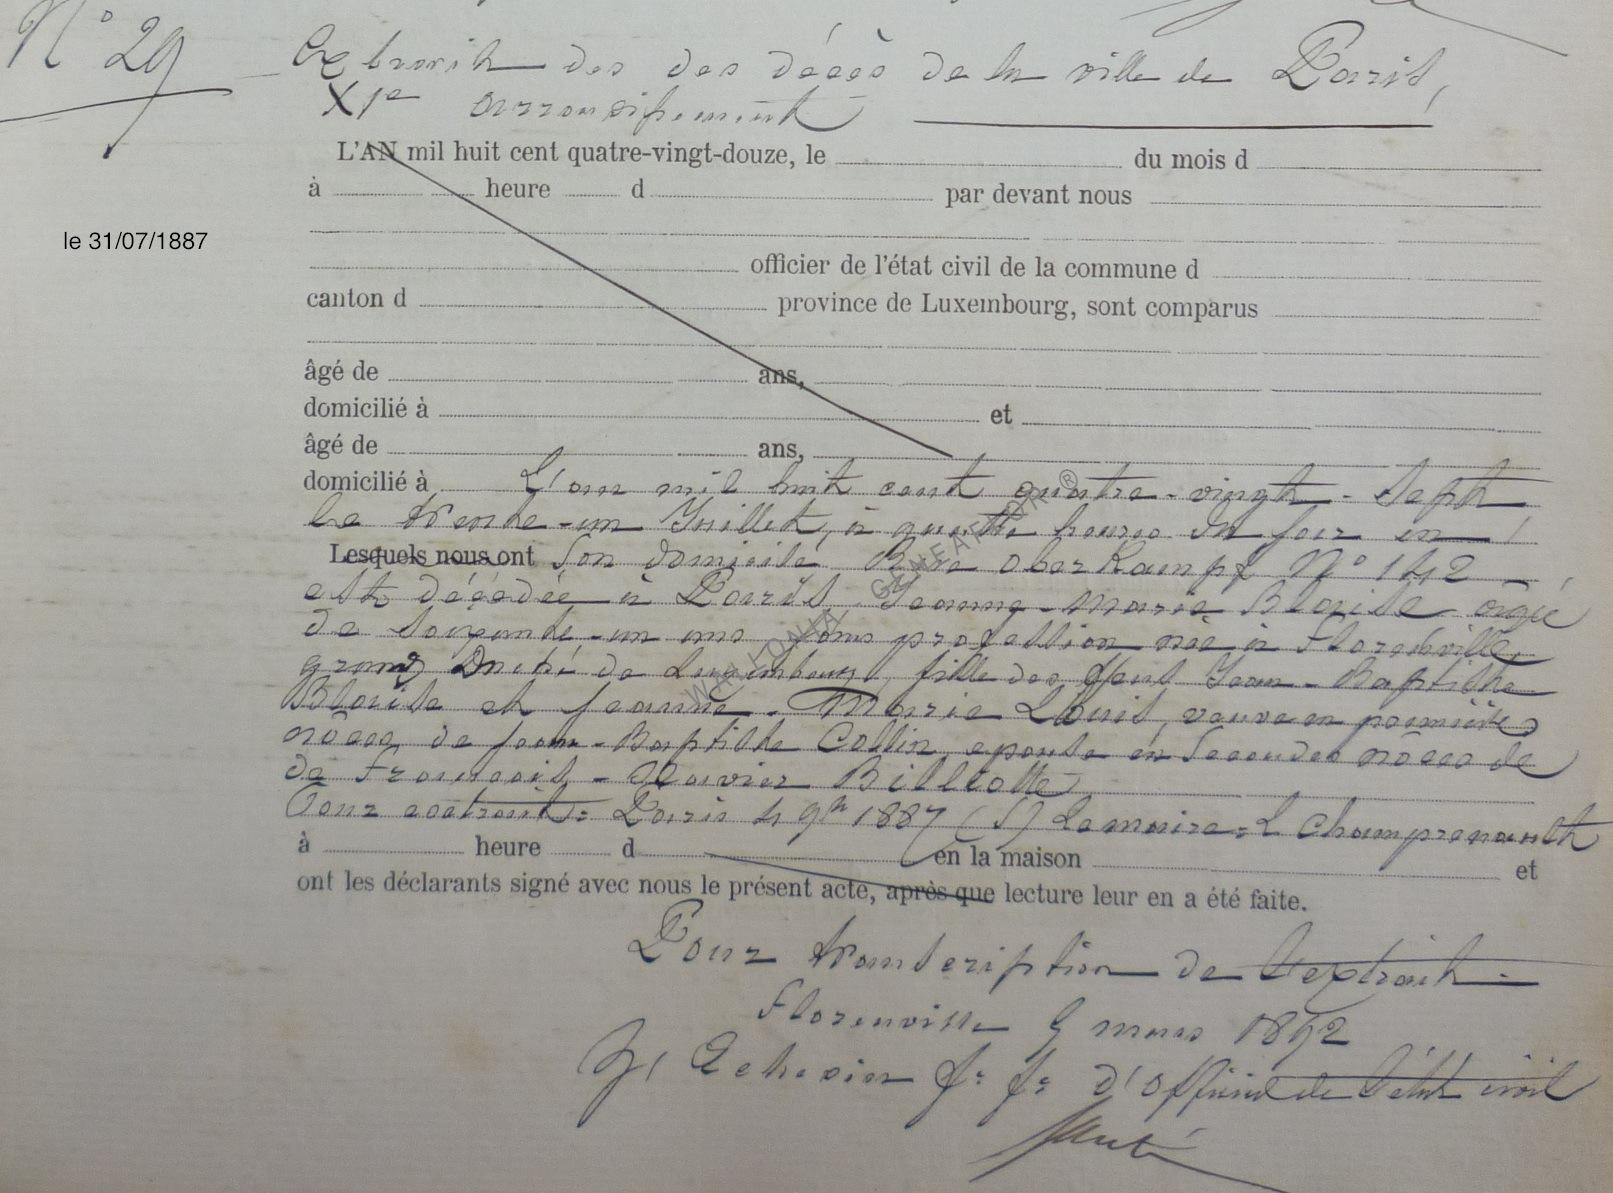 N° 29
Extrait des des décès de la ville de Paris,
XIe arrondissement
L'AN mil huit cent quatre-vingt-douze, le du mois d
à heure d par devant nous
le 31/07/1887
officier de l'état civil de la commune d
canton d province de Luxembourg, sont comparus
âgé de ans,
domicilié à et
âgé de ans,
domicilié à L'an mil huit cent quatre-vingt-sept
le trente-un Juillet, à quatre heures du soir en
Lesquels nous ont son domicile Rue Oberkampf N° 142
est décédée à Paris Jeanne-Marie Blaise âgée
de soixante-un ans sans profession née à Florenville,
grand Duché de Luxembourg, fille des feus Jean-Baptiste
Blaise et Jeanne-Marie Louis, veuve en premières
nôces de Jean-Baptiste Collin, epouse en secondes nôces de
de François-Xavier Billiotte
Pour extrait: Paris 4 9bre 1887 (S) Le maire:
à heure d en la maison et
ont les déclarants signé avec nous le présent acte, après que lecture leur en a été faite.
Pour transcription de l'extrait
Florenville mars 1892
Echevin ff. d'Officier de l'état civil
WALLONIA GENEANET.ORG®